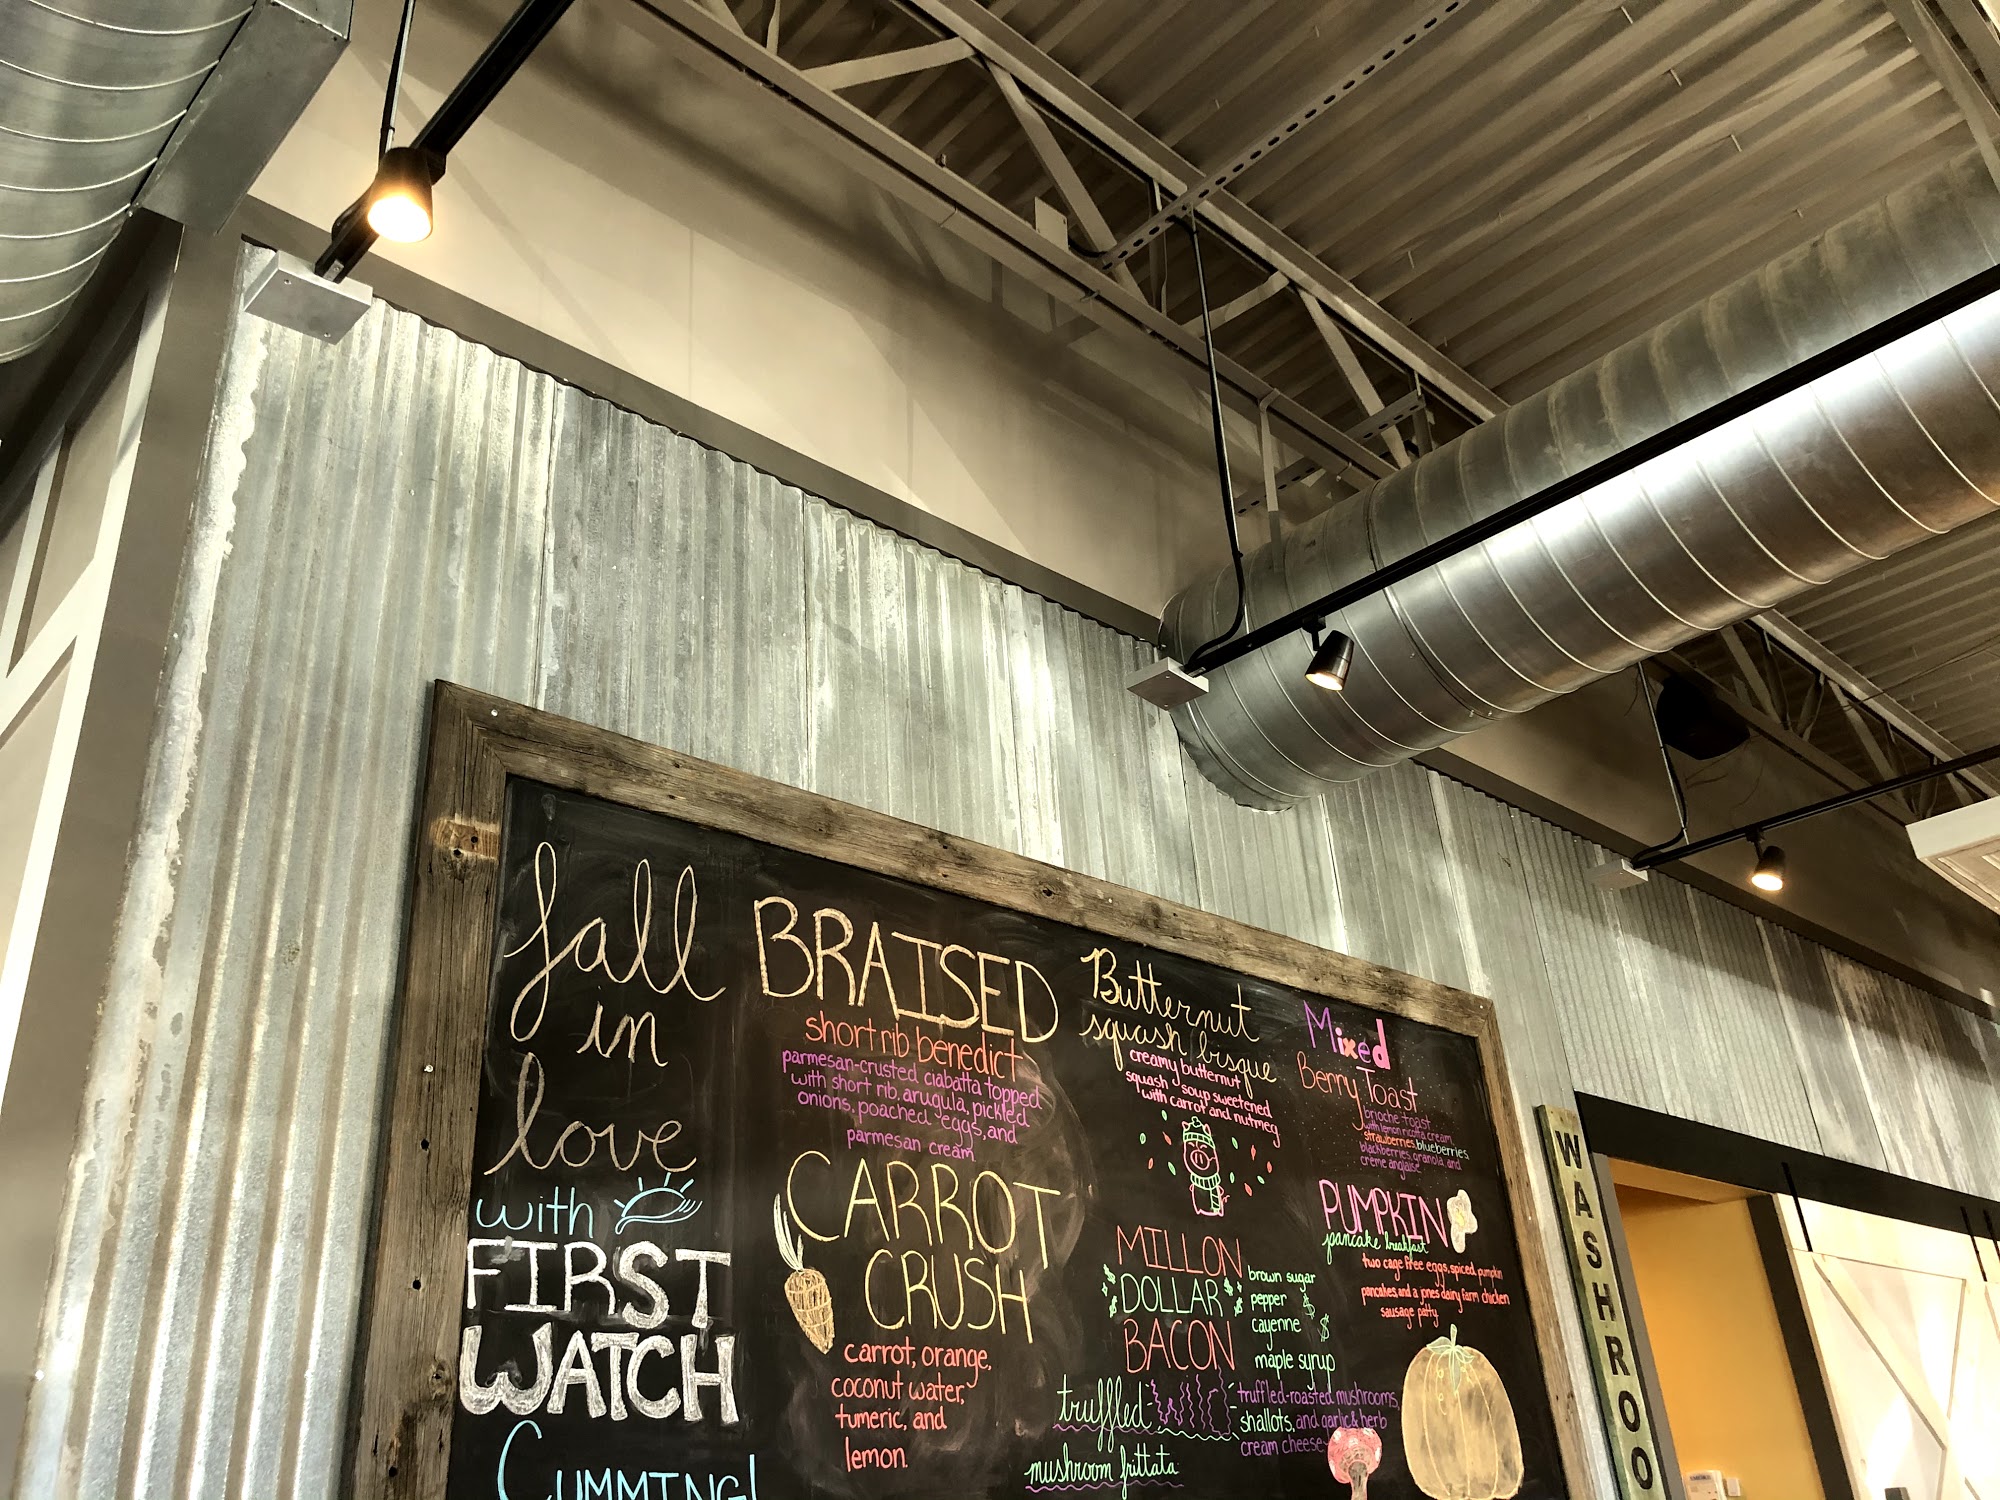 fall
in
love
with
FIRST
WATCH
CUMMING!
BRAISED
short rib benedict
parmesan-crusted ciabatta topped
with short rib, arugula, pickled
onions, poached eggs, and
parmesan cream
CARROT
CRUSH
carrot, orange,
coconut water,
tumeric, and
lemon.
Butternut
squash bisque
creamy butternut
squash soup sweetened
with carrot and nutmeg
MILLON
DOLLAR
BACON
brown sugar
pepper
cayenne
maple syrup
truffled
mushroom frittata
truffled-roasted mushrooms,
shallots, and garlic & herb
cream cheese
Mixed
Berry Toast
brioche toast
with lemon ricotta cream,
strawberries, blueberries,
blackberries, granola, and
creme anglaise
PUMPKIN
pancake breakfast
two cage free eggs, spiced pumpkin
pancakes, and a jones dairy farm chicken
sausage patty
WASHROO